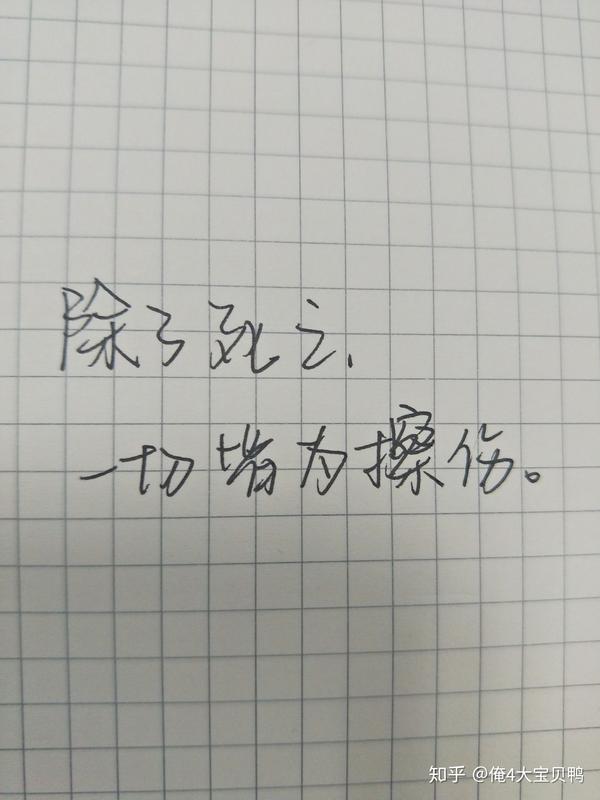 除了死亡，
一切皆为擦伤。
知乎 @俺4大宝贝鸭